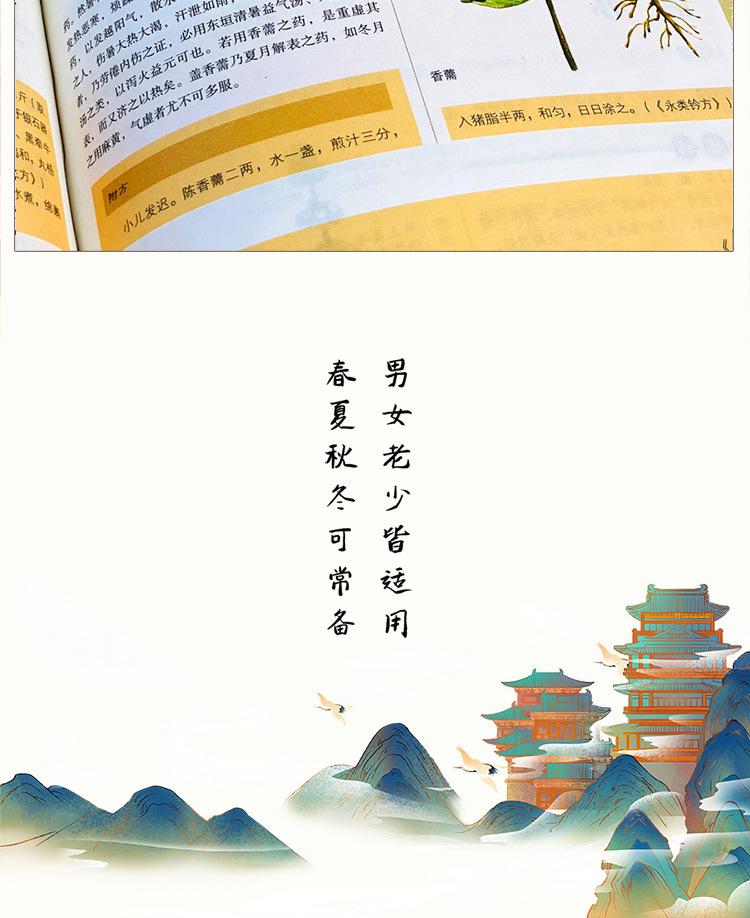 斤（取
于银石器
、黑牵牛
和，丸梧
方》）
水煮，绵裹
药，以发越阳气，散水
之人，伤暑大热大渴，汗泄如雨
者，乃劳倦内伤之证，必用东垣清暑益气汤、
汤之类，以泻火益元可也。若用香薷之药，是重虚其
表，而又济之以热矣。盖香薷乃夏月解表之药，如冬月
之用麻黄，气虚者尤不可多服。
附方
小儿发迟。陈香薷二两，水一盏，煎汁三分，
香薷
入猪脂半两，和匀，日日涂之。（《永类钤方》）
男女老少皆适用
春夏秋冬可常备